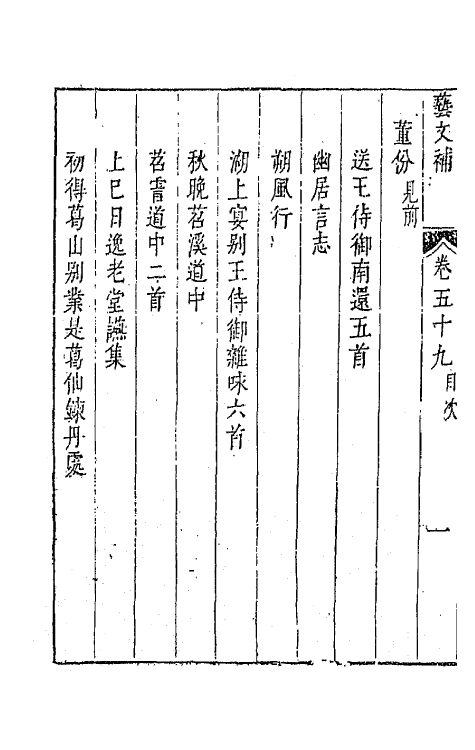 藝文補　卷五十九目次　一
董份見前
送王侍御南還五首
幽居言志
朔風行
湖上宴别王侍御雜咏六首
秋晚苕溪道中
苕霅道中二首
上巳日逸老堂讌集
初得葛山别業是葛仙鍊丹處